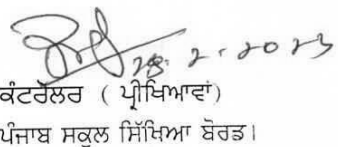 28.2.2023
ਕੰਟਰੋਲਰ ( ਪ੍ਰੀਖਿਆਵਾਂ)
ਪੰਜਾਬ ਸਕੂਲ ਸਿੱਖਿਆ ਬੋਰਡ।